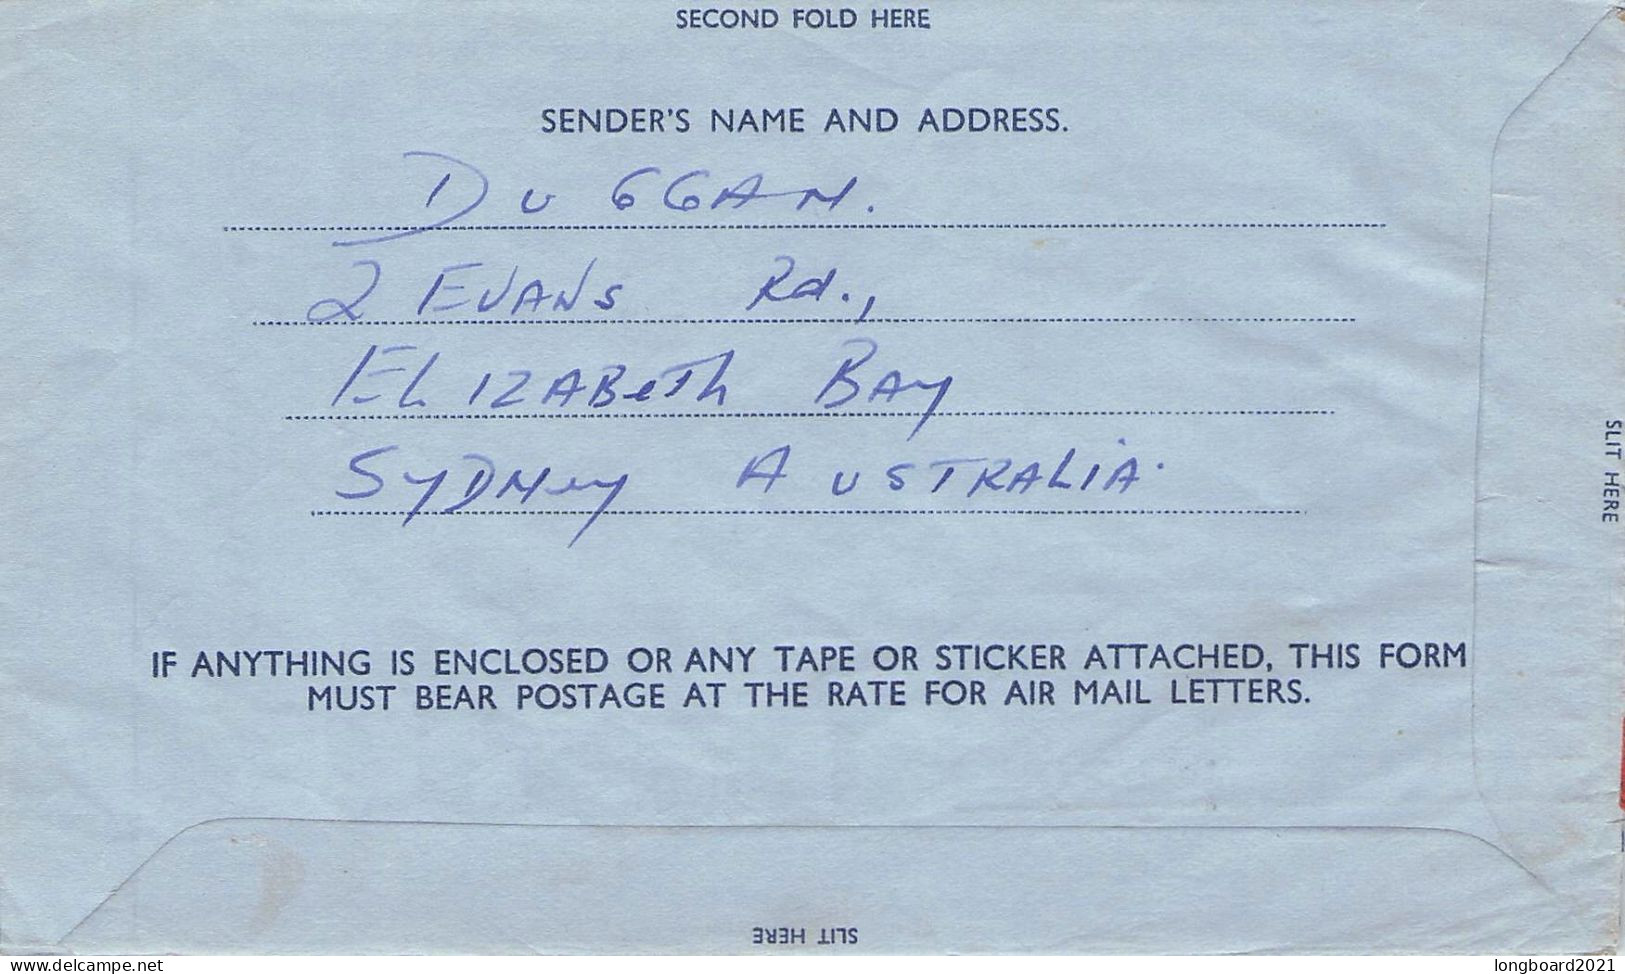 SECOND FOLD HERE
SENDER'S NAME AND ADDRESS.
DUGGAN.
2 EVANS Rd.,
ELIZABeTh BAy
SyDNey AUSTRALIA.
SLIT HERE
IF ANYTHING IS ENCLOSED OR ANY TAPE OR STICKER ATTACHED, THIS FORM
MUST BEAR POSTAGE AT THE RATE FOR AIR MAIL LETTERS.
SLIT HERE
www.delcampe.net
longboard2021